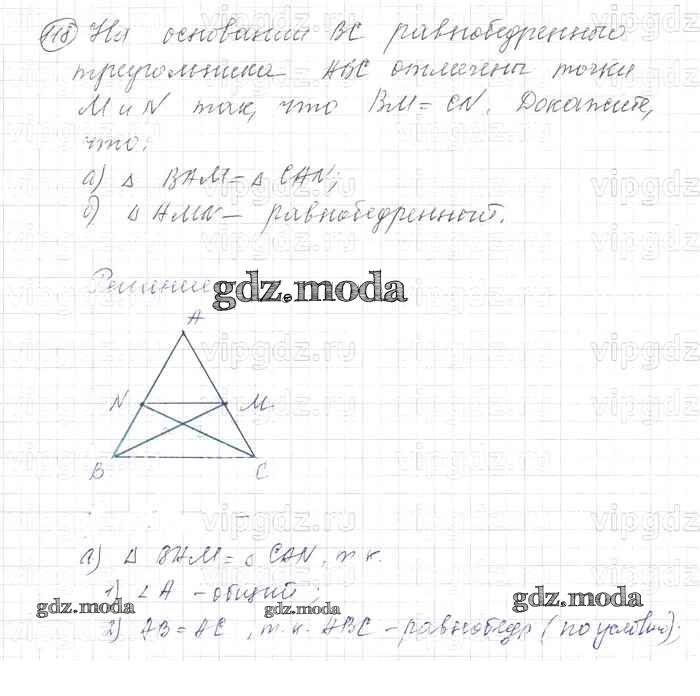 118 На основании BC равнобедренного
треугольника ABC отмечены точки
M и N так, что BM = CN. Докажите,
что:
а) △ BAM = △ CAN;
б) △ AMN — равнобедренный.
Решение
gdz.moda
A
N M
B C
а) △ BAM = △ CAN, т.к.
1) ∠A - общий;
gdz.moda gdz.moda gdz.moda
2) AB = AC, т.к. ABC - равнобедр (по условию);
vipgdz.ru